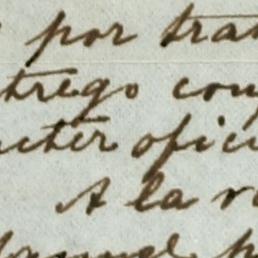 por tra
trego con
cter ofici
A la v